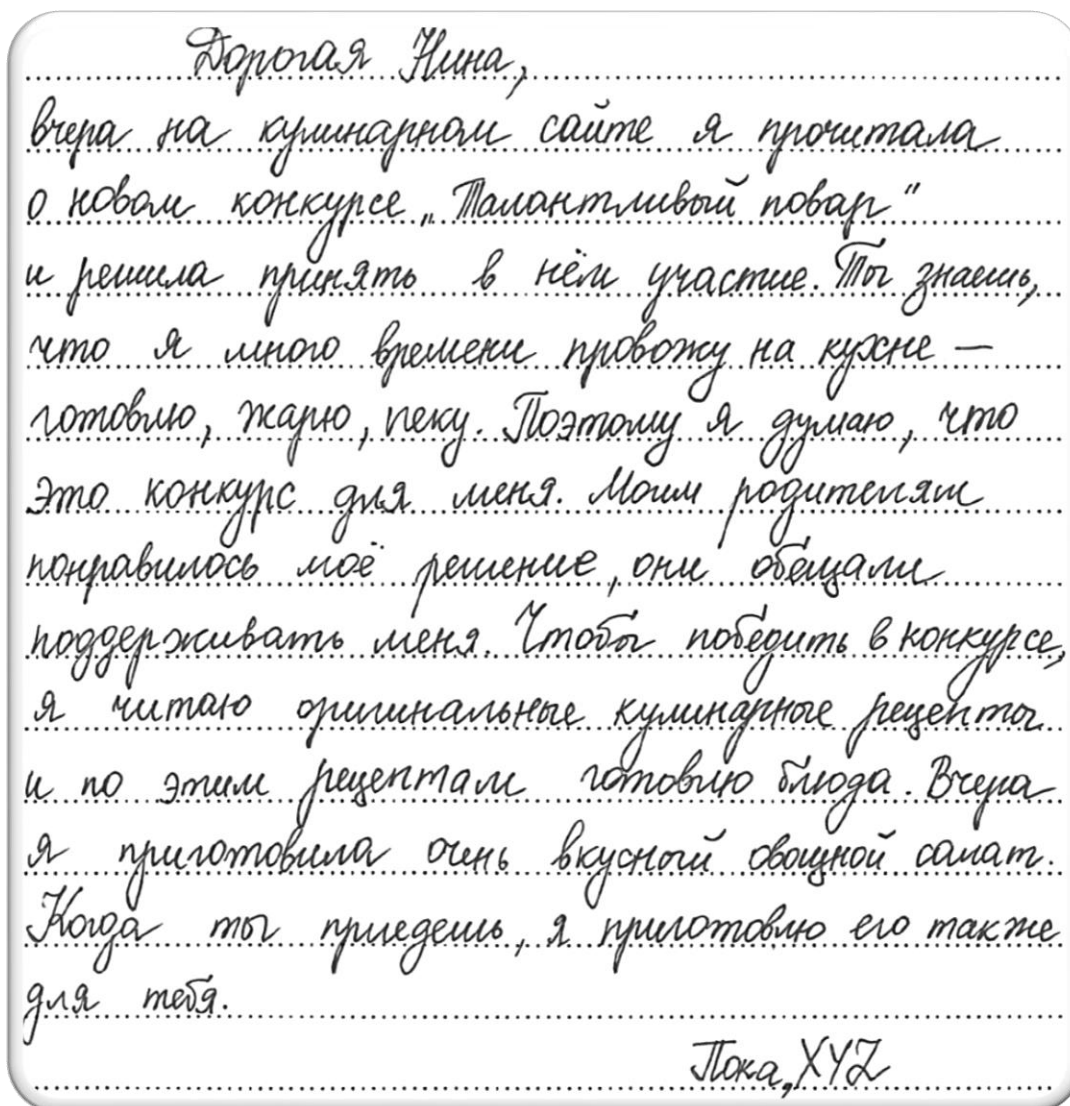 Дорогая Нина,
вчера на кулинарном сайте я прочитала
о новом конкурсе „Талантливый повар“
и решила принять в нём участие. Ты знаешь,
что я много времени провожу на кухне —
готовлю, жарю, пеку. Поэтому я думаю, что
это конкурс для меня. Моим родителям
понравилось моё решение, они обещали
поддерживать меня. Чтобы победить в конкурсе,
я читаю оригинальные кулинарные рецепты
и по этим рецептам готовлю блюда. Вчера
я приготовила очень вкусный овощной салат.
Когда ты приедешь, я приготовлю его также
для тебя.
Пока, XYZ